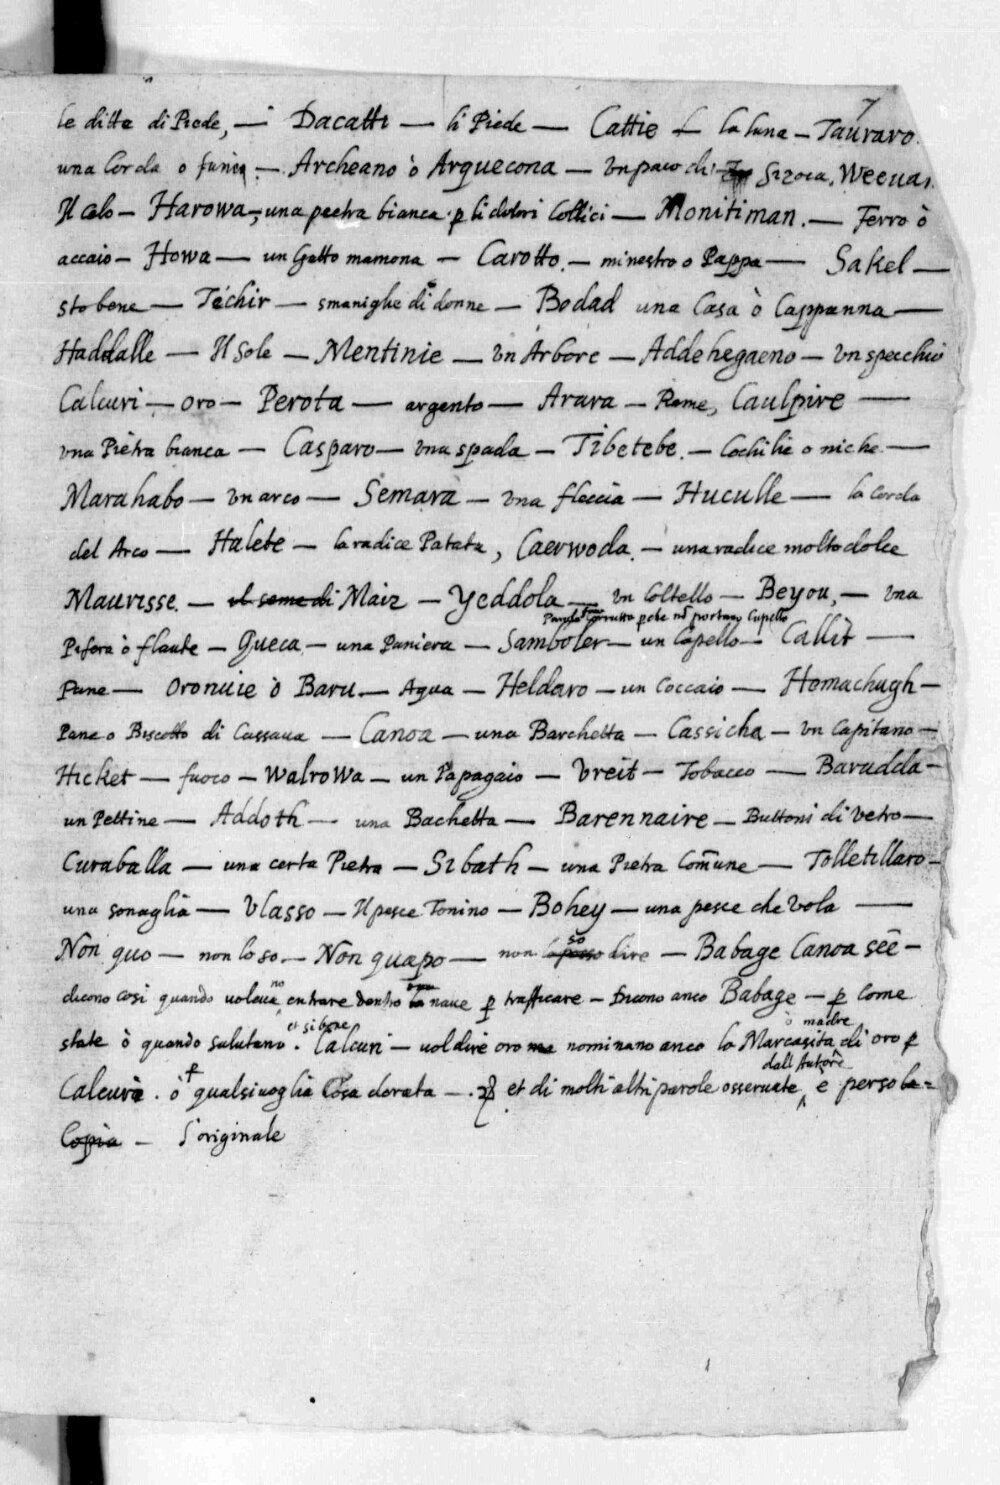 7
le ditta di Piede, — Dacatti — li Piede — Cattie — la luna — Tauraro.
una Corda o funica — Archeano ò Arquecona — un paco di Sizoca, Weevai
Il Celo — Harowa —, una peetra bianca p li dolori Collici — Monitiman. — Ferro ò
accaio — Howa — un Gatto mamona — Carotto. — minestro o Pappa — Sakel —
sto bene — Téchir — smaniglie di donne — Bodad una Casa ò Cappanna —
Haddalle — Il Sole — Mentinie — un Arbore — Addehegaeno — un specchio
Calcuri — oro — Perota — argento — Arara — Rame, Caulpire —
una Piètra bianca — Casparo — una spada — Tibetebe. — Cochilie o niche —
Marahabo — un arco — Semara — una fleccia — Huculle — la corda
del Arco — Halete — la radice Patata, Caerwoda. — una radice molto dolce
Maurisse. — il seme di Maiz — Yeddola — un Coltello — Beyou, — una
perche nõ portano Cupello
Pifera ò flaute — Gueca — una Paniera — Samboler — un Capello — Callit —
Pane — Oronuie ò Baru — Aqua — Heldaro — un Coccaio — Hemachugh —
Pane o Biscotto di Cassava — Canoa — una Barchetta — Cassicha — un Capitano —
Hicket — fuoco — Walrowa — un Papagaio — Vreit — Tobacco — Barudda —
un Pettine — Addoth — una Bachetta — Barennaire — Buttoni di Vetro —
Curaballa — una certa Pietra — Sibath — una Pietra Com̃une — Tolletillaro —
una sonaglia — Vlasso — Il pesce Tonino — Bohey — una pesce che vola —
Non quo — non lo so. — Non quapo — non lo posso so dire — Babage Canoa seẽ —
dicono cosi quando voleua no entrare dentro la nave p trafficare — Dicono anco Babage — p Come
et si bene ò madre
state ò quando salutano. Calcuri — vol dire oro ma nominano anco la Marcasita di oro p
dall Autore
Calcuri. ò p qualsivoglia Cosa dorata — . et di molti altri parole osservate e perso la=
Copia — l'originale